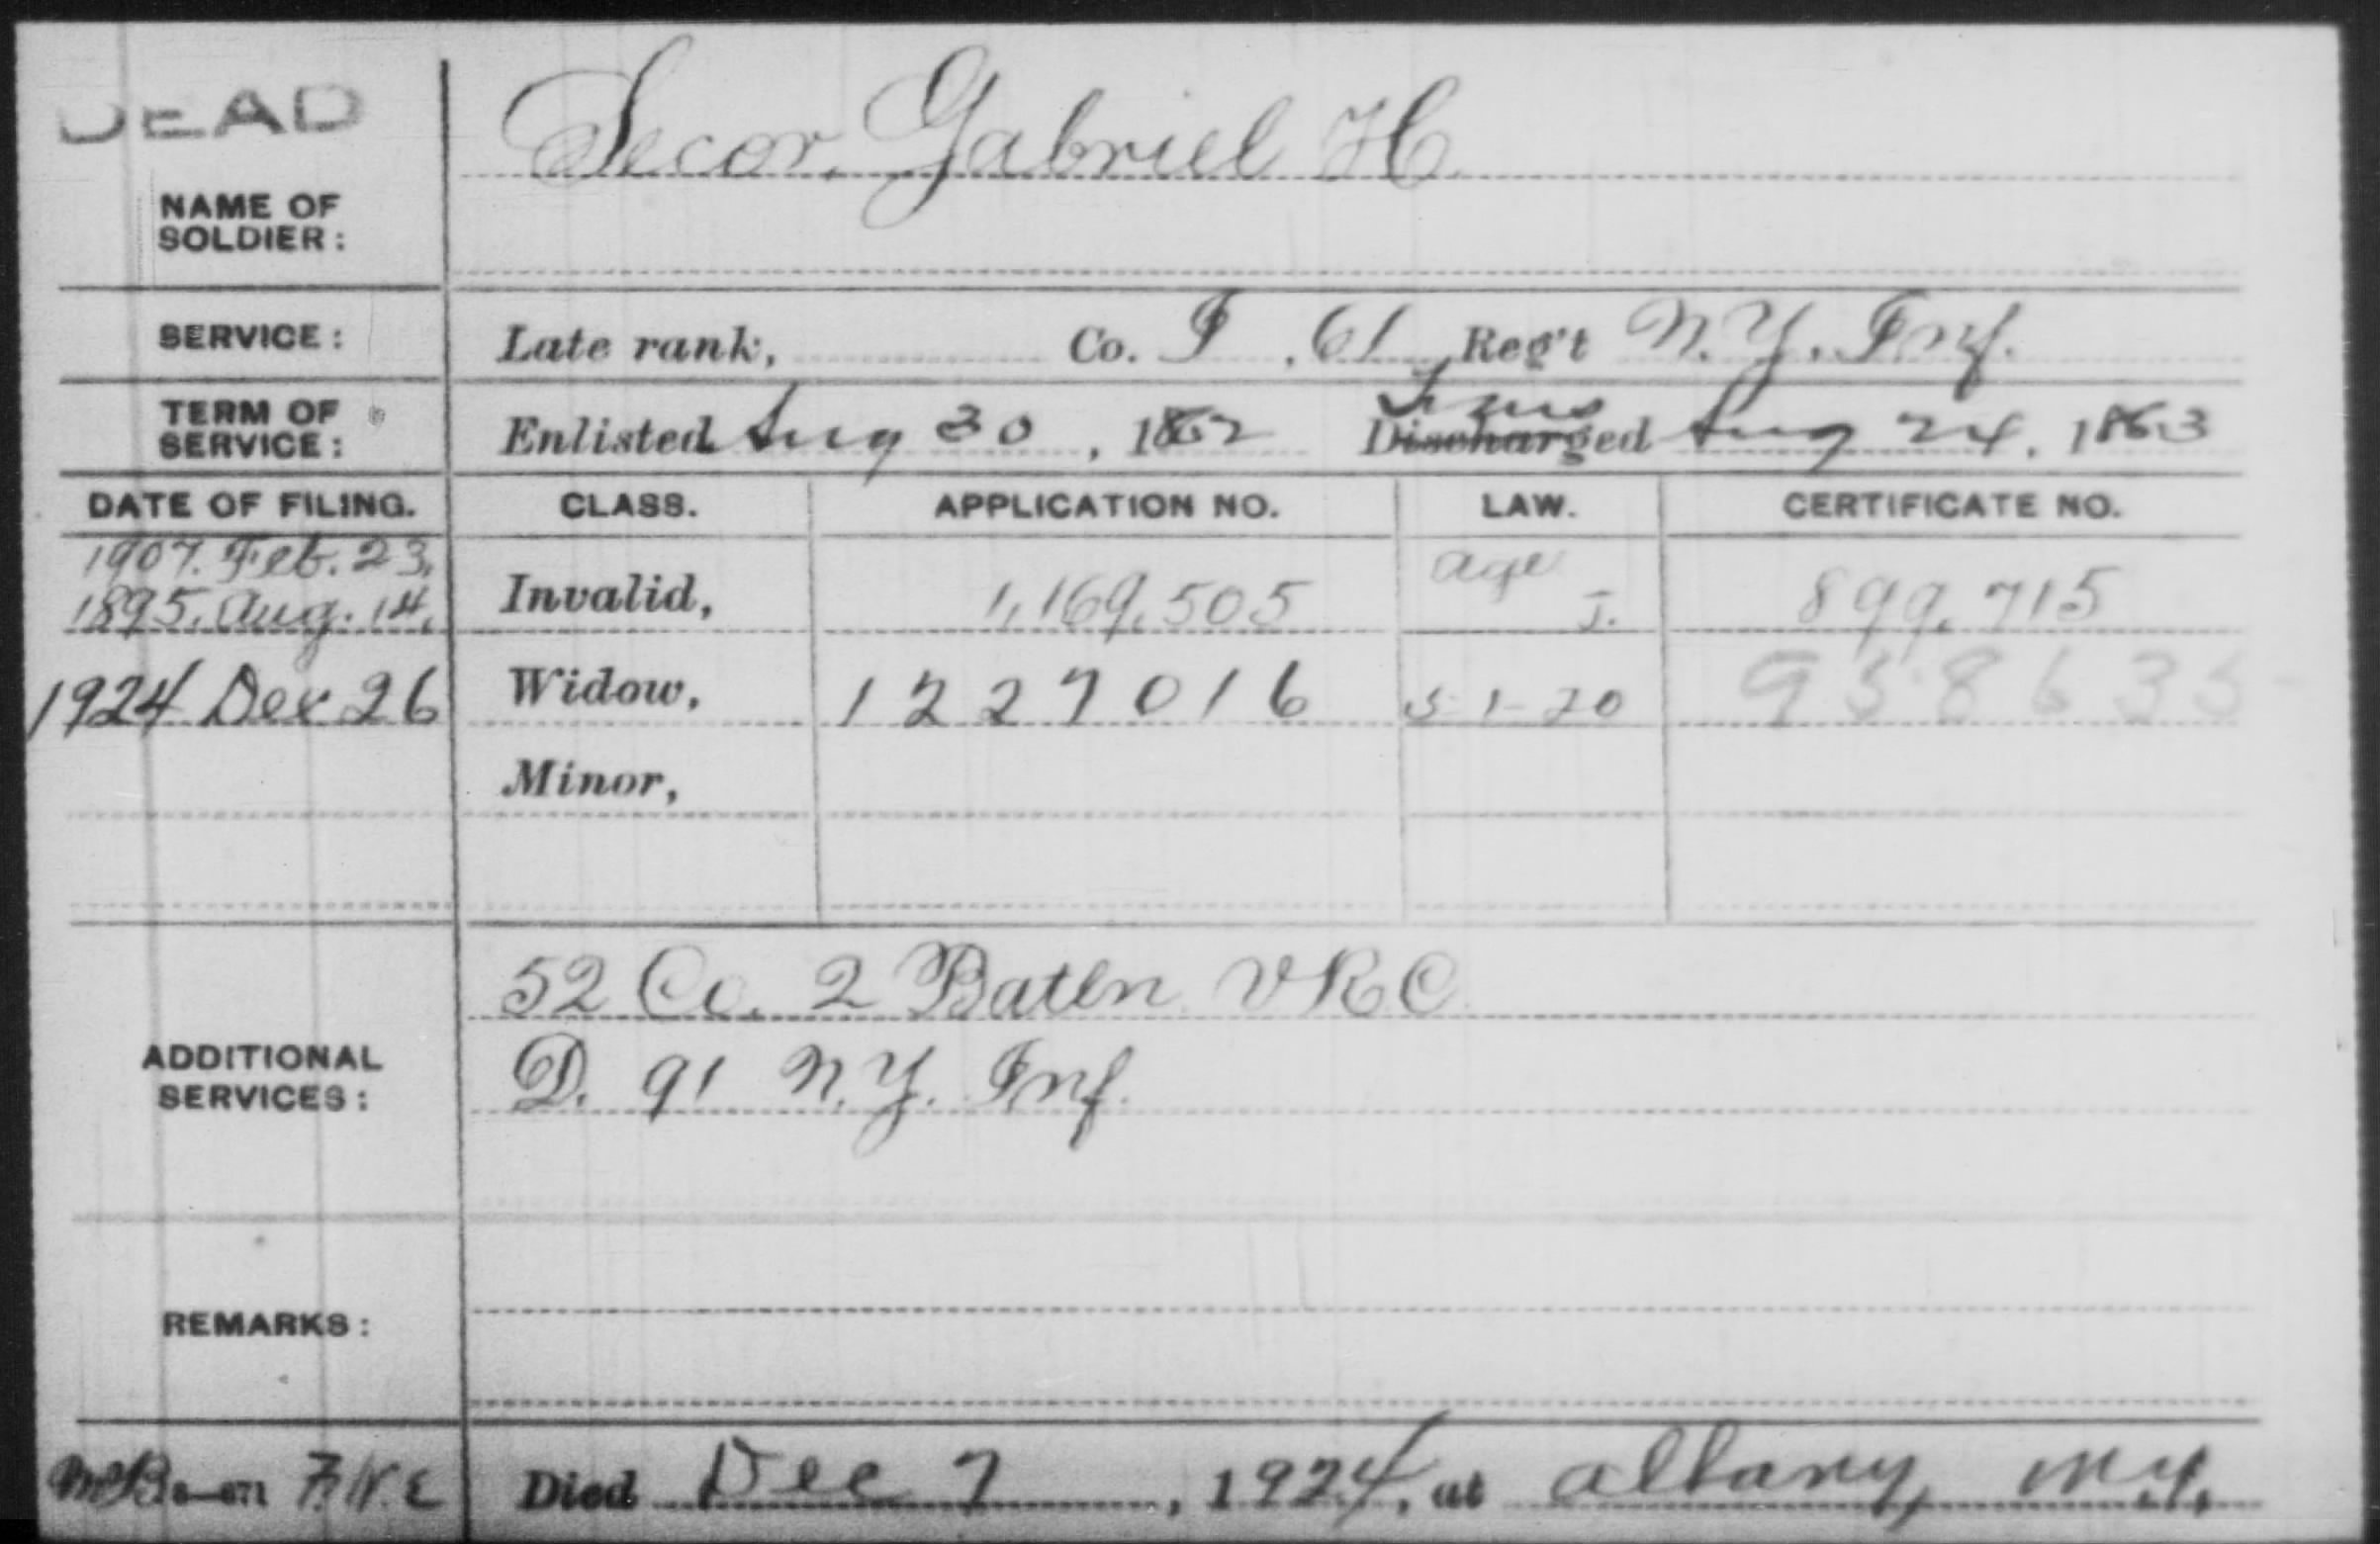 DEAD
Secor, Gabriel H.
NAME OF
SOLDIER:
SERVICE: Late rank, Co. I, 61 Reg't N.Y. Inf.
Trans
TERM OF
SERVICE: Enlisted Aug 30, 1862 Discharged Aug 24, 1863
DATE OF FILING. CLASS. APPLICATION NO. LAW. CERTIFICATE NO.
1907. Feb. 23. age
1895. Aug. 14. Invalid, 1,169,505 J. 899,715
1924 Dec 26 Widow, 1227016 5-1-20 958635
Minor,
52 Co. 2 Batln VRC
ADDITIONAL
SERVICES: D. 91 N.Y. Inf.
REMARKS:
Died Dec 7, 1924, at Albany, N.Y.